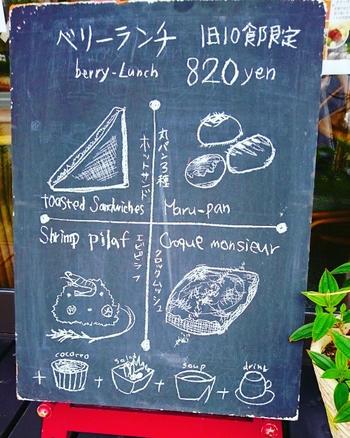 ベリーランチ 1日10食限定
berry-Lunch 820yen
ホットサンド
toasted Sandwiches
丸パン3種
Maru-pan
Shrimp pilaf
エビピラフ
Croque monsieur
クロックムッシュ
+ cocotto + salad + soup + drink